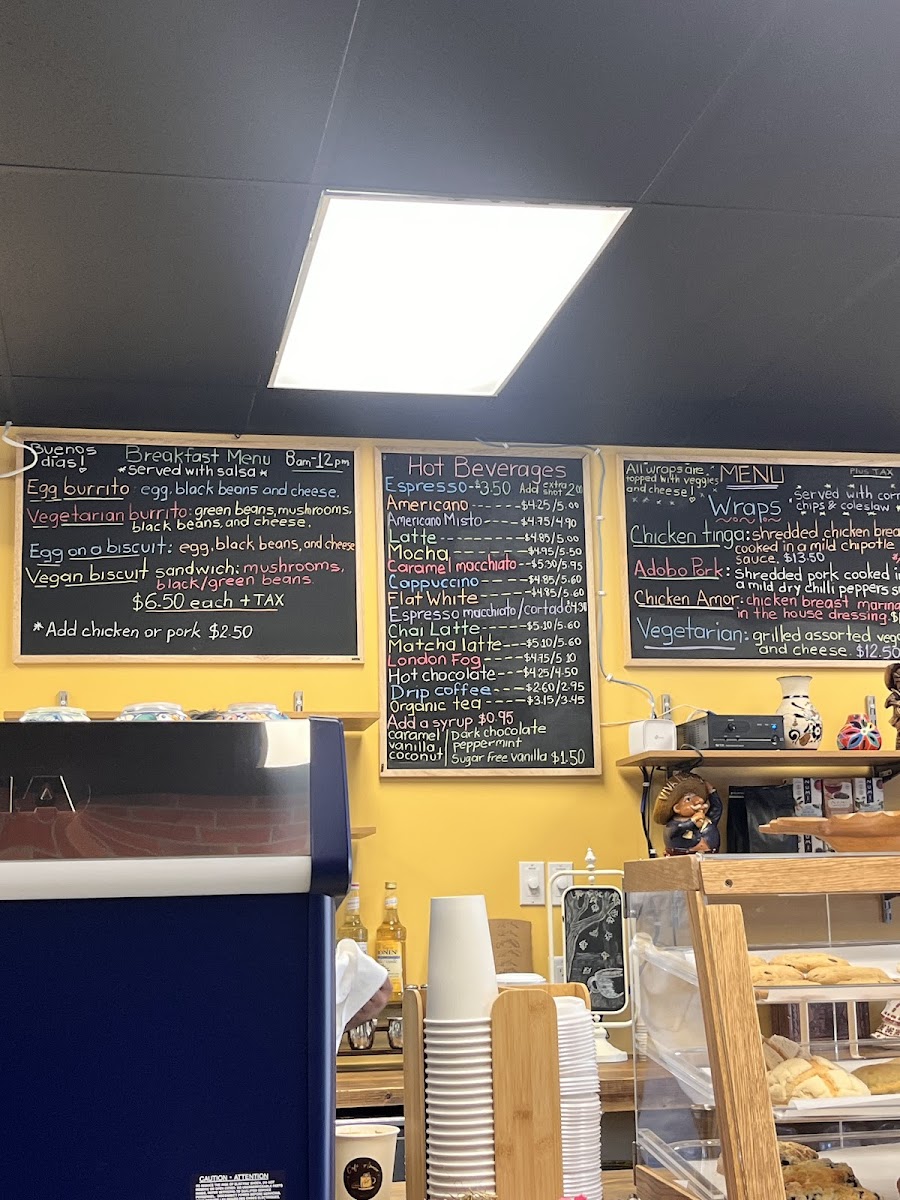 Buenos días!
Breakfast Menu 8am-12pm
*served with salsa*
Egg burrito: egg, black beans and cheese.
Vegetarian burrito: green beans, mushrooms,
black beans, and cheese.
Egg on a biscuit: egg, black beans, and cheese
Vegan biscuit sandwich: mushrooms,
black/green beans.
$6.50 each + TAX
*Add chicken or pork $2.50
Hot Beverages
Espresso--$3.50 Add extra shot 2.00
Americano----$4.25/5.00
Americano Misto----$4.75/4.90
Latte--------$4.85/5.00
Mocha--------$4.95/5.50
Caramel macchiato--$5.30/5.95
Cappuccino----$4.85/5.60
Flat White-----$4.85/5.60
Espresso macchiato/cortado
Chai Latte-----$5.10/5.60
Matcha latte----$5.10/5.60
London Fog----$4.75/5.10
Hot chocolate---$4.25/4.50
Drip coffee----$2.60/2.95
Organic tea----$3.15/3.45
Add a syrup $0.95
caramel Dark chocolate
vanilla peppermint
coconut Sugar Free vanilla $1.50
All wraps are topped with veggies and cheese!
MENU
PLUS TAX
Wraps
served with corn
chips & coleslaw *
Chicken tinga: shredded chicken brea
cooked in a mild chipotle
sauce. $13.50
Adobo Pork: Shredded pork cooked i
a mild dry chilli peppers s
Chicken Amor: chicken breast marina
in the house dressing. $
Vegetarian: grilled assorted veg
and cheese. $12.50
VIVA
NUMI
MONIN
CAUTION - ATTENTION